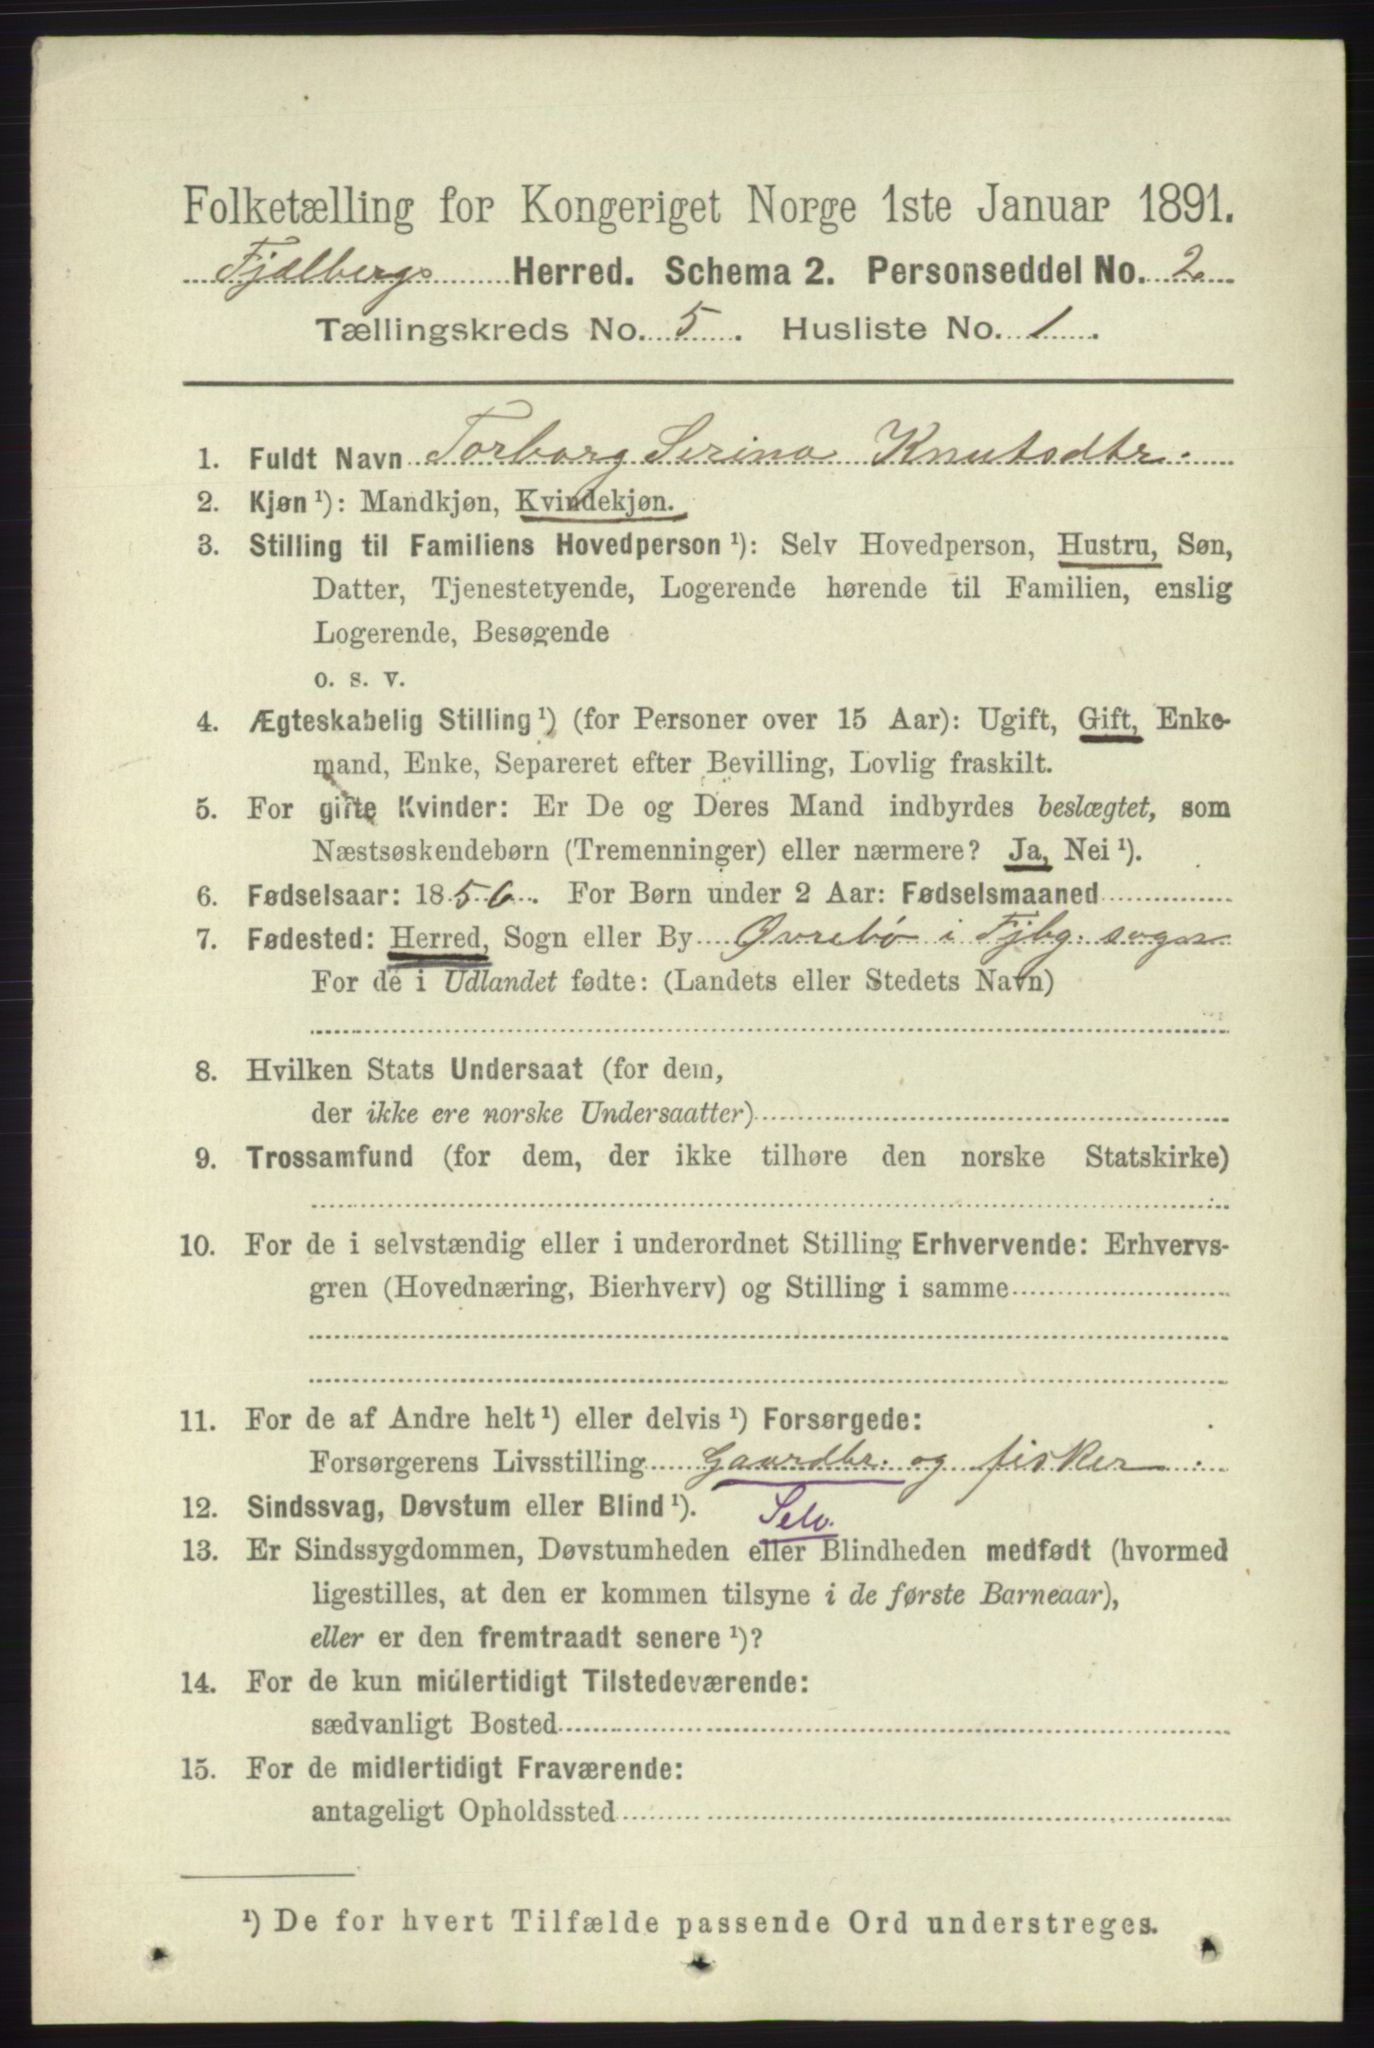 Folketælling for Kongeriget Norge 1ste Januar 1891.
Fjelbergs Herred. Schema 2. Personseddel No. 2
Tællingskreds No. 5. Husliste No. 1.
1. Fuldt Navn Torborg Serina Knutsdtr.
2. Kjøn ¹): Mandkjøn, Kvindekjøn.
3. Stilling til Familiens Hovedperson ¹): Selv Hovedperson, Hustru, Søn,
Datter, Tjenestetyende, Logerende hørende til Familien, enslig
Logerende, Besøgende
o. s. v.
4. Ægteskabelig Stilling ¹) (for Personer over 15 Aar): Ugift, Gift, Enke-
mand, Enke, Separeret efter Bevilling, Lovlig fraskilt.
5. For gifte Kvinder: Er De og Deres Mand indbyrdes beslægtet, som
Næstsøskendebørn (Tremenninger) eller nærmere? Ja, Nei ¹).
6. Fødselsaar: 1856. For Børn under 2 Aar: Fødselsmaaned
7. Fødested: Herred, Sogn eller By Øvrebø i Fjbg. sogn
For de i Udlandet fødte: (Landets eller Stedets Navn)
8. Hvilken Stats Undersaat (for dem,
der ikke ere norske Undersaatter)
9. Trossamfund (for dem, der ikke tilhøre den norske Statskirke)
10. For de i selvstændig eller i underordnet Stilling Erhvervende: Erhvervs-
gren (Hovednæring, Bierhverv) og Stilling i samme
11. For de af Andre helt ¹) eller delvis ¹) Forsørgede:
Forsørgerens Livsstilling Gaardbr. og fisker.
12. Sindssvag, Døvstum eller Blind ¹). Selv.
13. Er Sindssygdommen, Døvstumheden eller Blindheden medfødt (hvormed
ligestilles, at den er kommen tilsyne i de første Barneaar),
eller er den fremtraadt senere ¹)?
14. For de kun midlertidigt Tilstedeværende:
sædvanligt Bosted
15. For de midlertidigt Fraværende:
antageligt Opholdssted
¹) De for hvert Tilfælde passende Ord understreges.